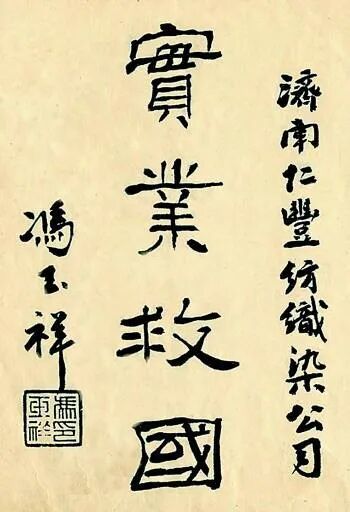 濟南仁豐紡織染公司
實業救國
馮玉祥
馮玉祥印